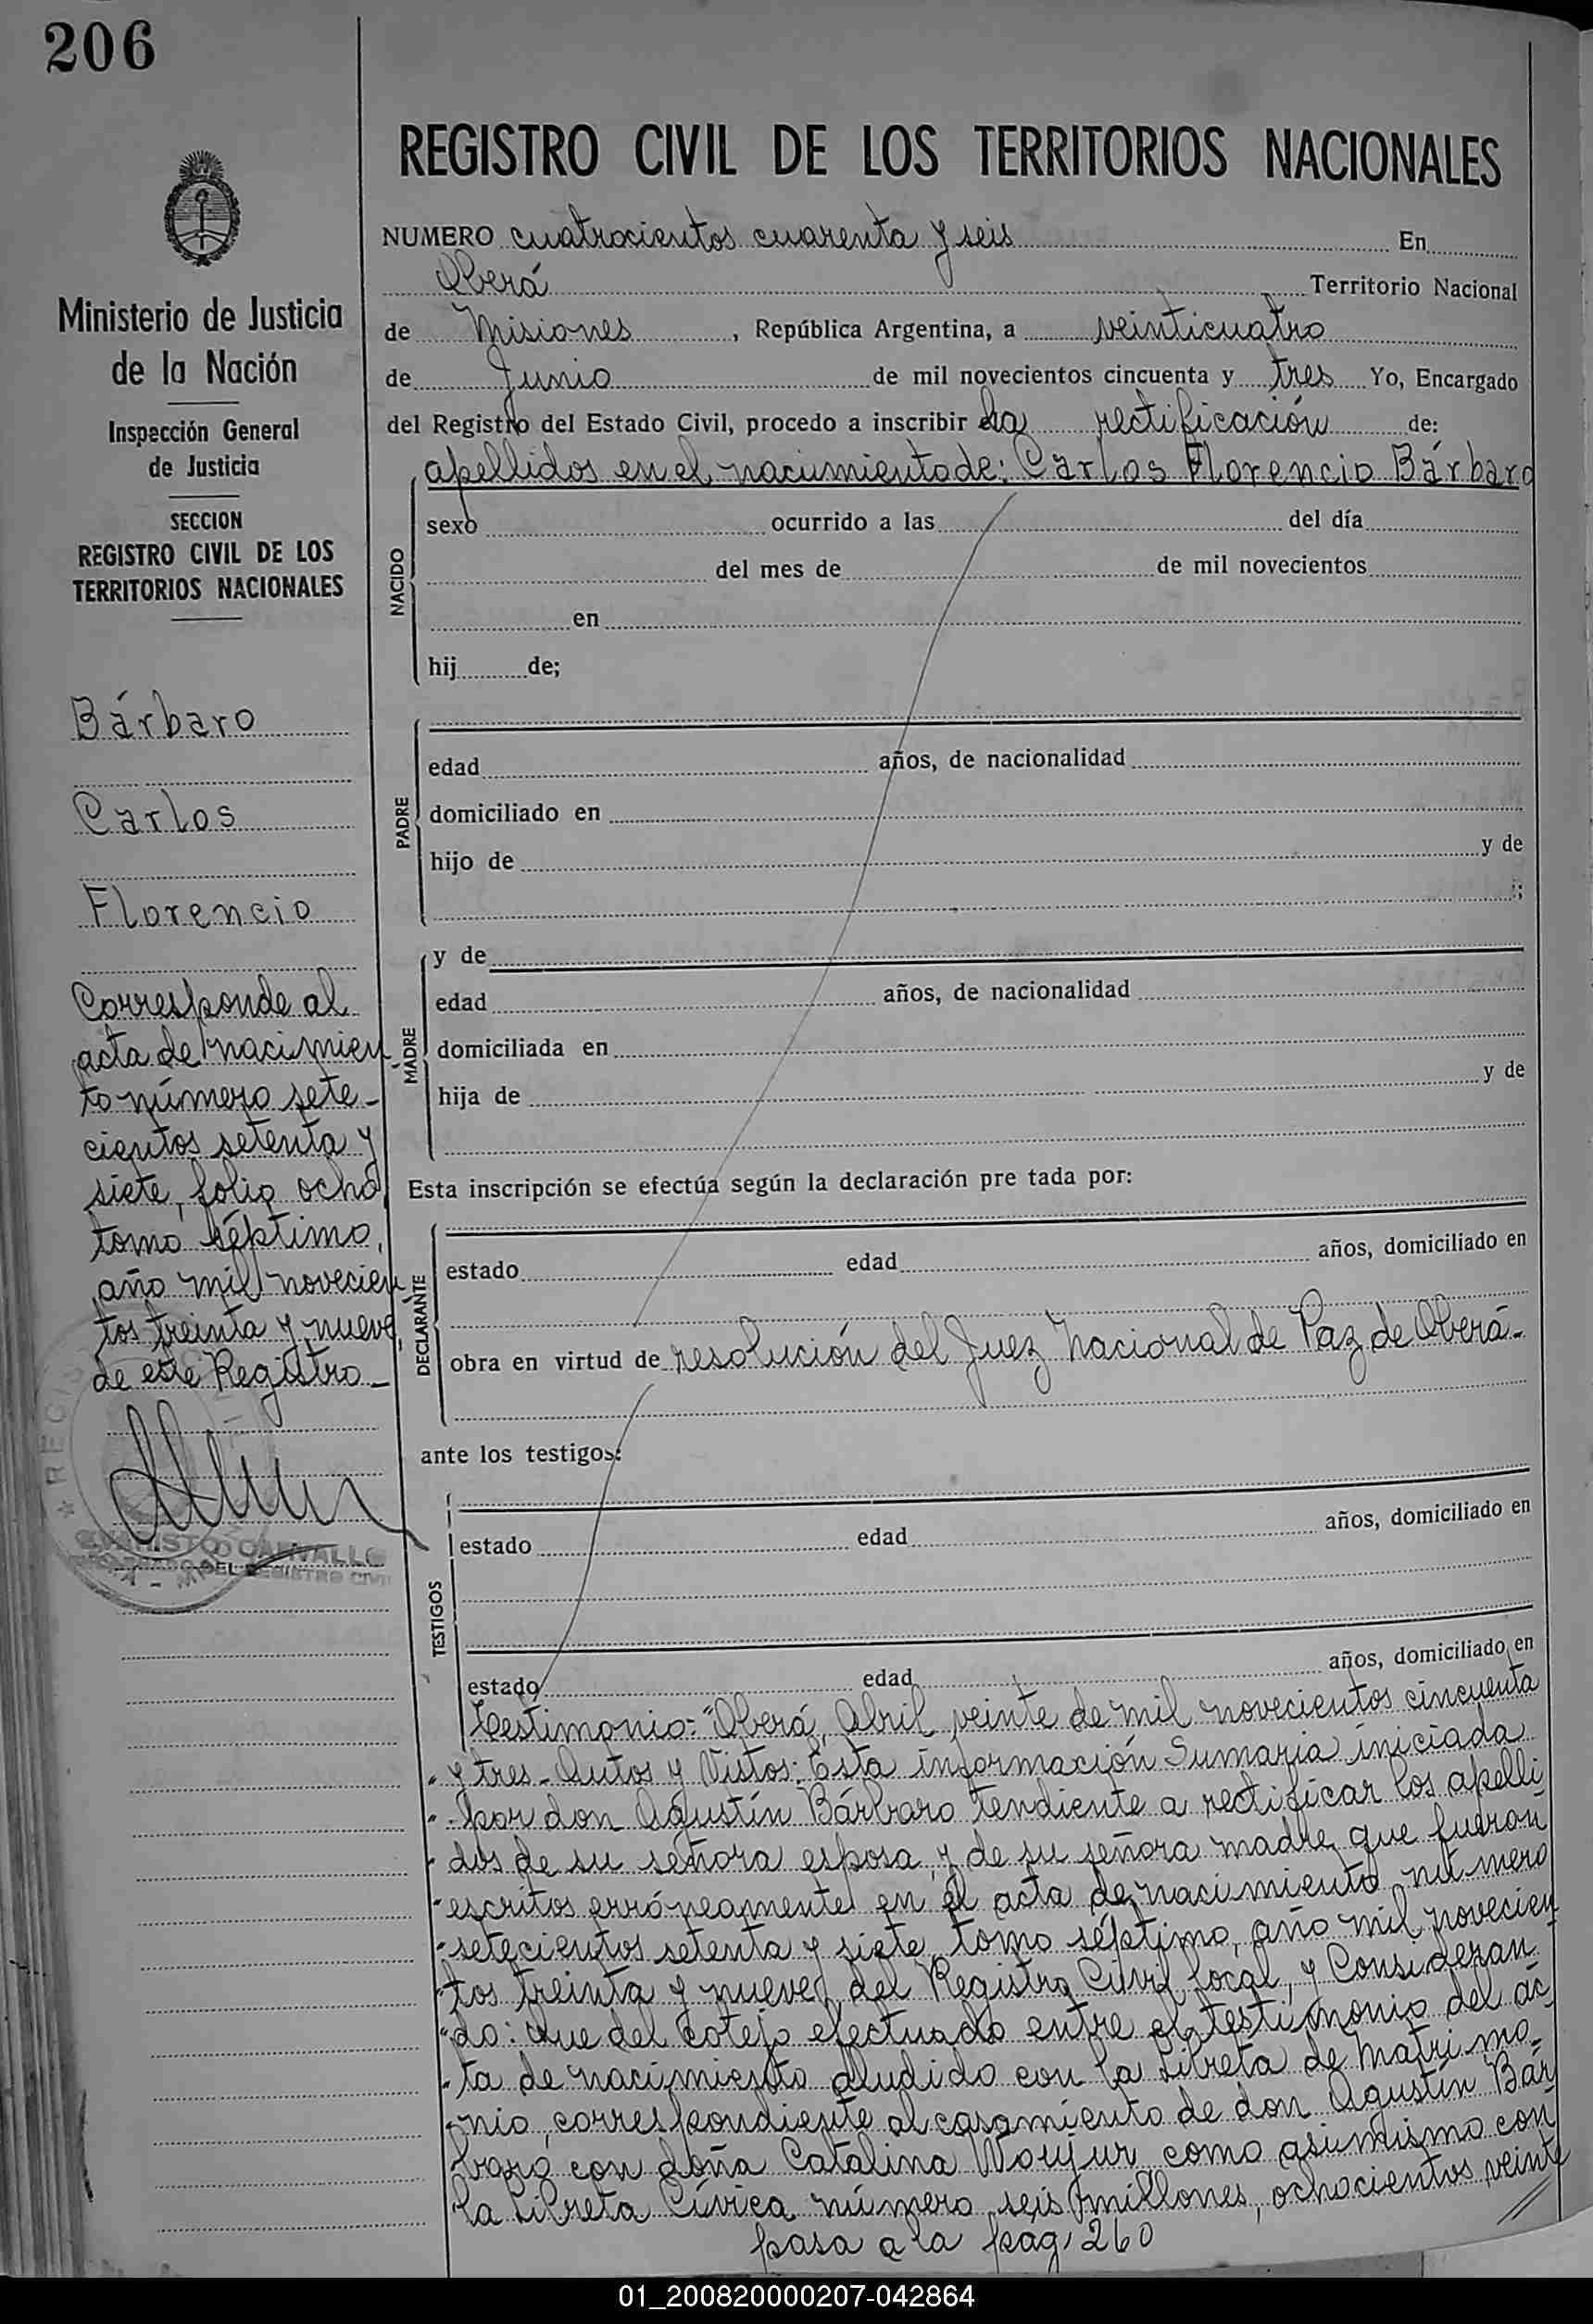 206
REGISTRO CIVIL DE LOS TERRITORIOS NACIONALES
Ministerio de Justicia
de la Nación
Inspección General
de Justicia
SECCION
REGISTRO CIVIL DE LOS
TERRITORIOS NACIONALES
Bárbaro
Carlos
Florencio
Corresponde al
acta de nacimien
to número sete-
cientos setenta y
siete, folio ocho,
tomo séptimo,
año mil novecien
tos treinta y nueve,
de este Registro.-
CARVALLO
DEL REGISTRO CIVIL
NUMERO cuatrocientos cuarenta y seis En
Oberá Territorio Nacional
de Misiones, República Argentina, a veinticuatro
de Junio de mil novecientos cincuenta y tres Yo, Encargado
del Registro del Estado Civil, procedo a inscribir la rectificación de:
apellidos en el nacimiento de: Carlos Florencio Bárbaro
NACIDO
sexo ocurrido a las del día
del mes de de mil novecientos
en
hij de;
PADRE
edad años, de nacionalidad
domiciliado en
hijo de y de
;
MADRE
y de
edad años, de nacionalidad
domiciliada en
hija de y de
Esta inscripción se efectúa según la declaración pre tada por:
DECLARANTE
estado edad años, domiciliado en
obra en virtud de resolución del Juez Nacional de Paz de Oberá.-
ante los testigos:
TESTIGOS
estado edad años, domiciliado en
estado edad años, domiciliado en
Testimonio: "Oberá, Abril veinte de mil novecientos cincuenta
" y tres.- Autos y Vistos: Esta información Sumaria iniciada
" por don Agustín Bárbaro tendiente a rectificar los apelli
" dos de su señora esposa y de su señora madre que fueron
" escritos erróneamente en el acta de nacimiento número
" setecientos setenta y siete, tomo séptimo, año mil novecien
" tos treinta y nueve, del Registro Civil local, y Consideran
" do: Que del cotejo efectuado entre el testimonio del ac
" ta de nacimiento aludido con la Libreta de Matrimo-
" nio, correspondiente al casamiento de don Agustín Bár
baro con doña Catalina como asimismo con
la Libreta Cívica número seis millones, ochocientos veinte
pasa a la pag. 260
01_200820000207-042864